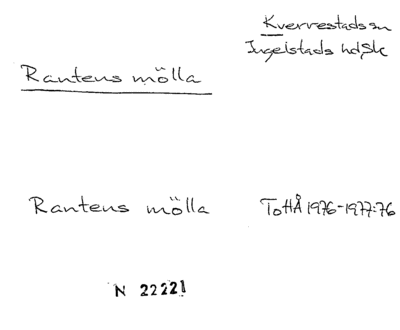 Kverrestads sn
Ingelstads hd, Sk
Rantens mölla
Rantens mölla
ToHÅ 1976-1977:76
N 22221